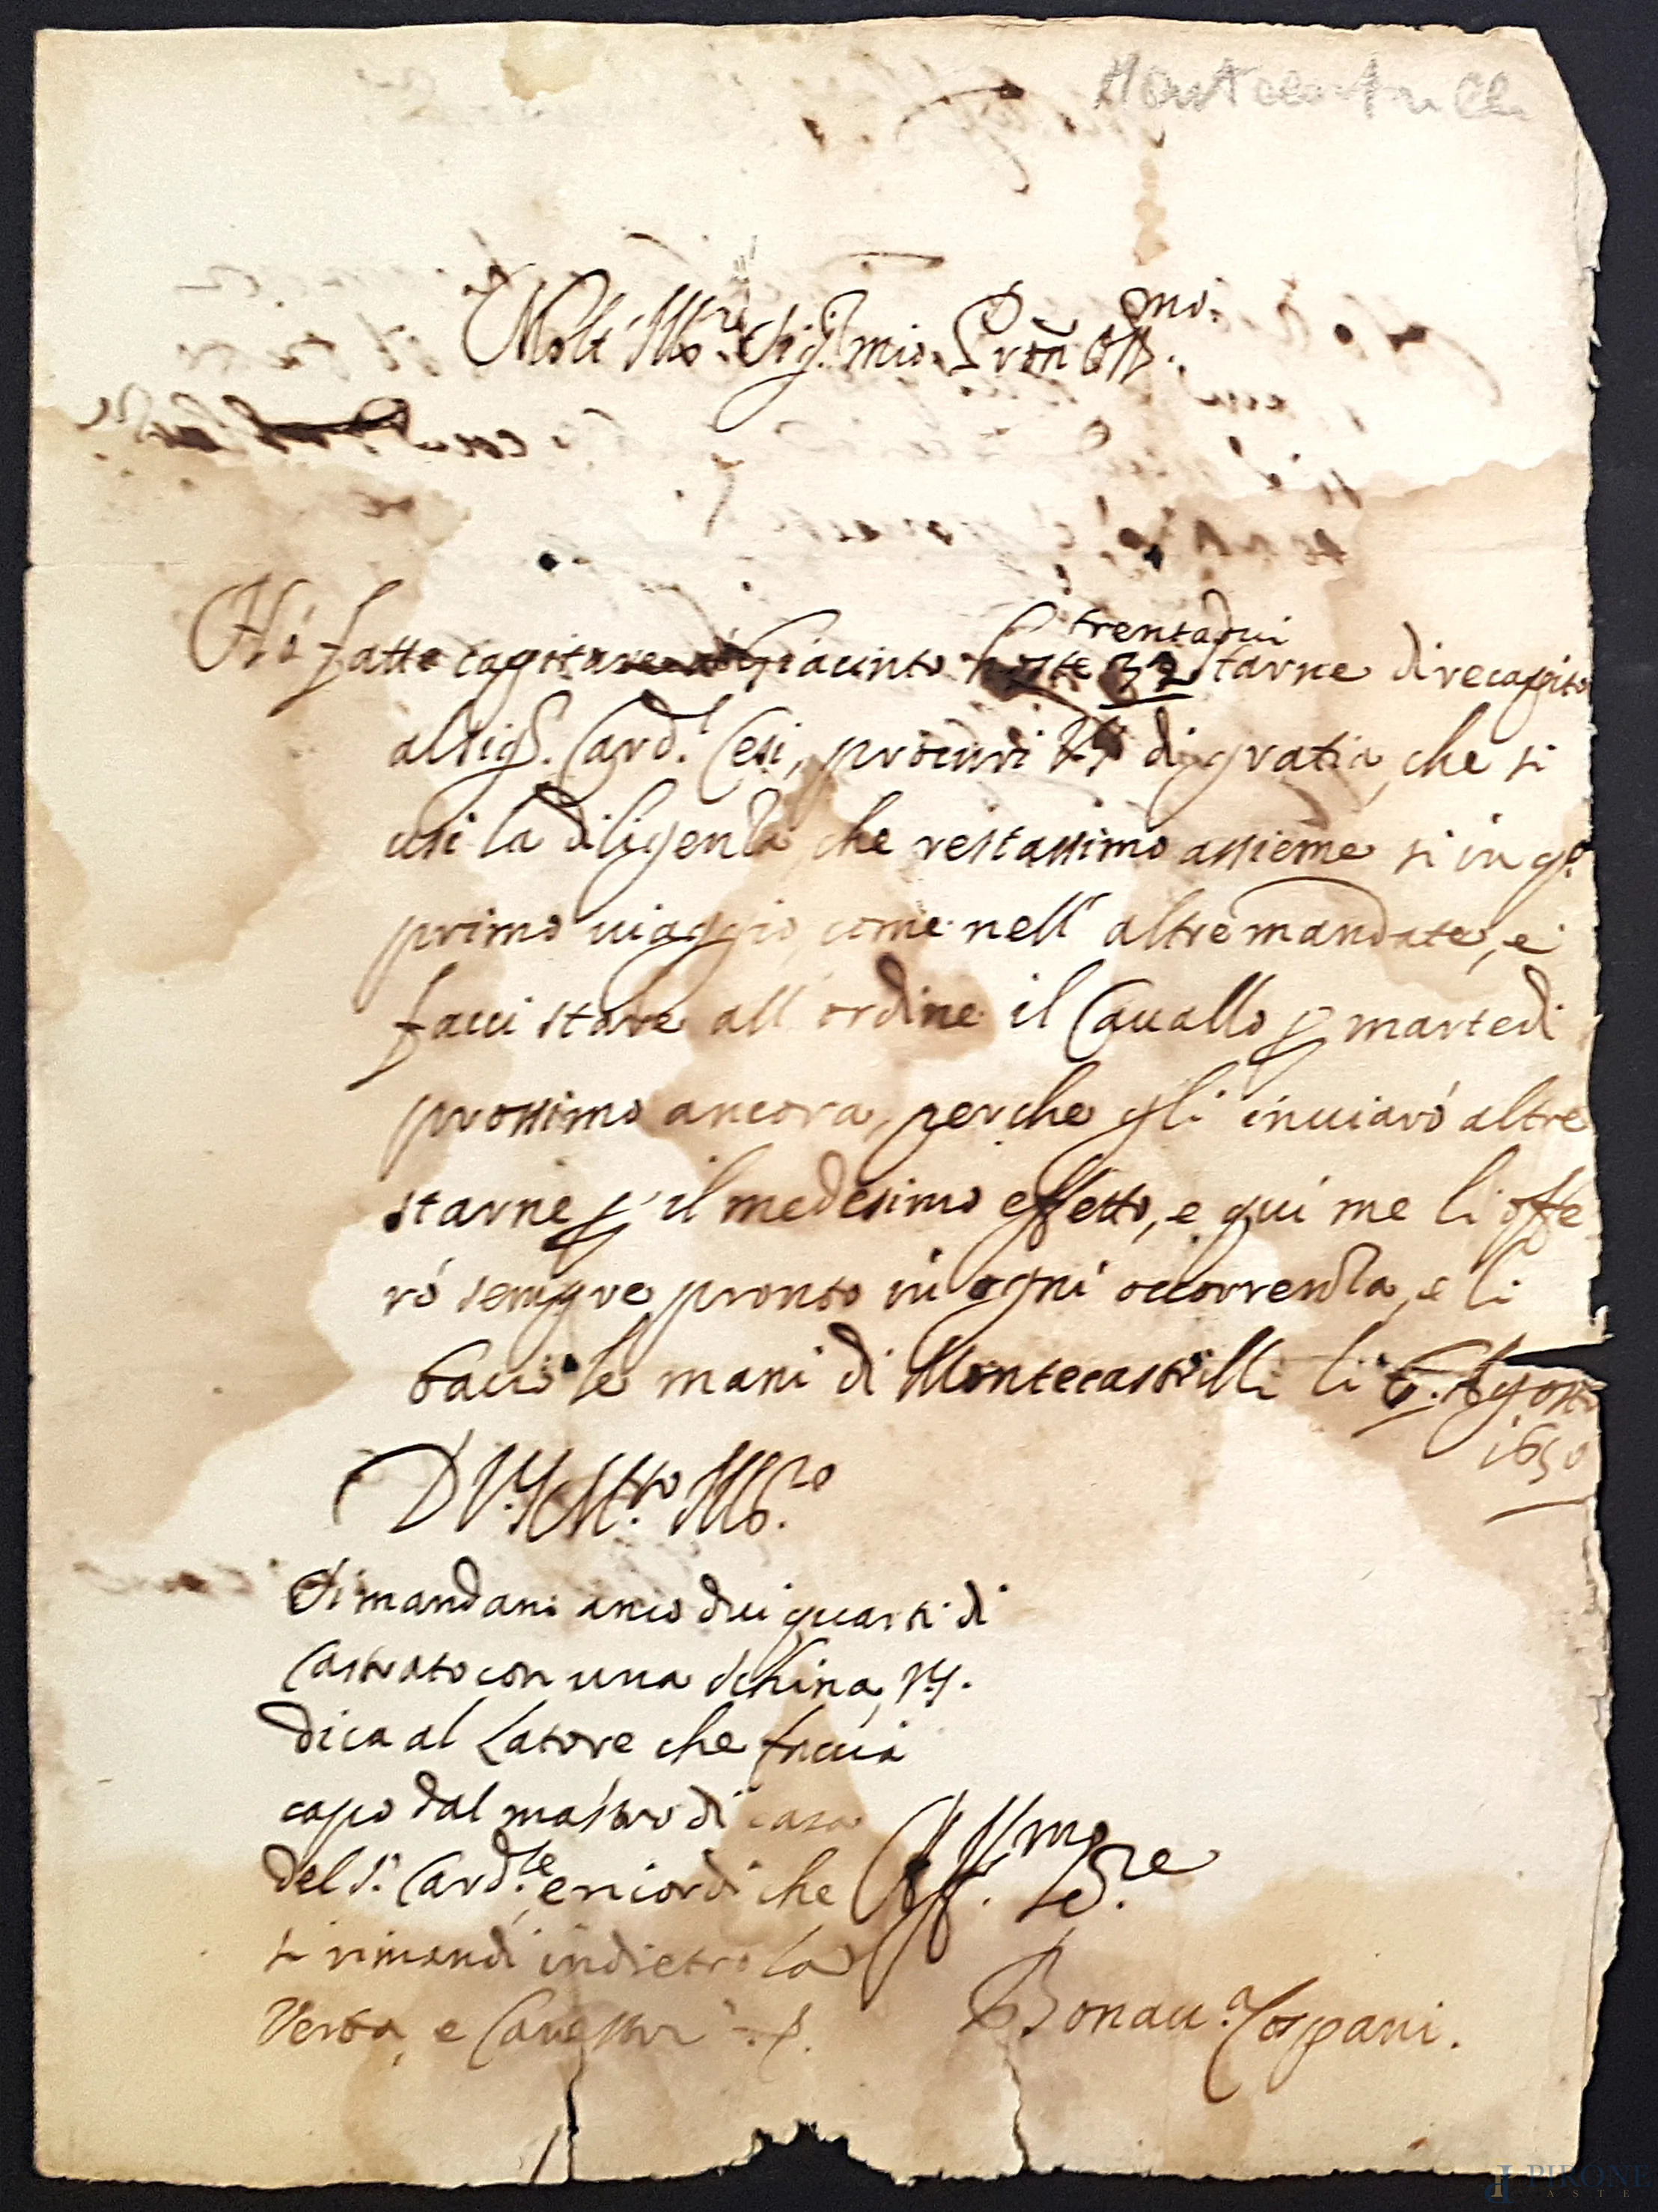 Montecastrilli
Molt' Ill.re Sig.r mio Pron Oss.mo
trentadui
Hò fatto capitare à Giacinto hoste 32 starne di recapito
al sig.r Card.l Cesi, procuri VS di gratia, che si
usi la diligenza che restassimo assieme si in q.o
primo viaggio, come nell' altre mandate, e
facci stare all' ordine il Cavallo p martedi
prossimo ancora, perche gli inviarò altre
starne p il medesimo effetto, e qui me li offe
rò sempre pronto in ogni occorrenza, e li
bacio le mani di Montecastrilli li 6. Agosto
1650
D V.S M.to Ill.re
Si mandano anco dui quarti di
Castrato con una schina, VS.
dica al Latore che faccia
capo dal mastro di casa
del S.r Card.le e ricordi che
si rimandi indietro la
e
Aff.mo Se.re
Bonav.a Cospani.
PIRONE
ASTE